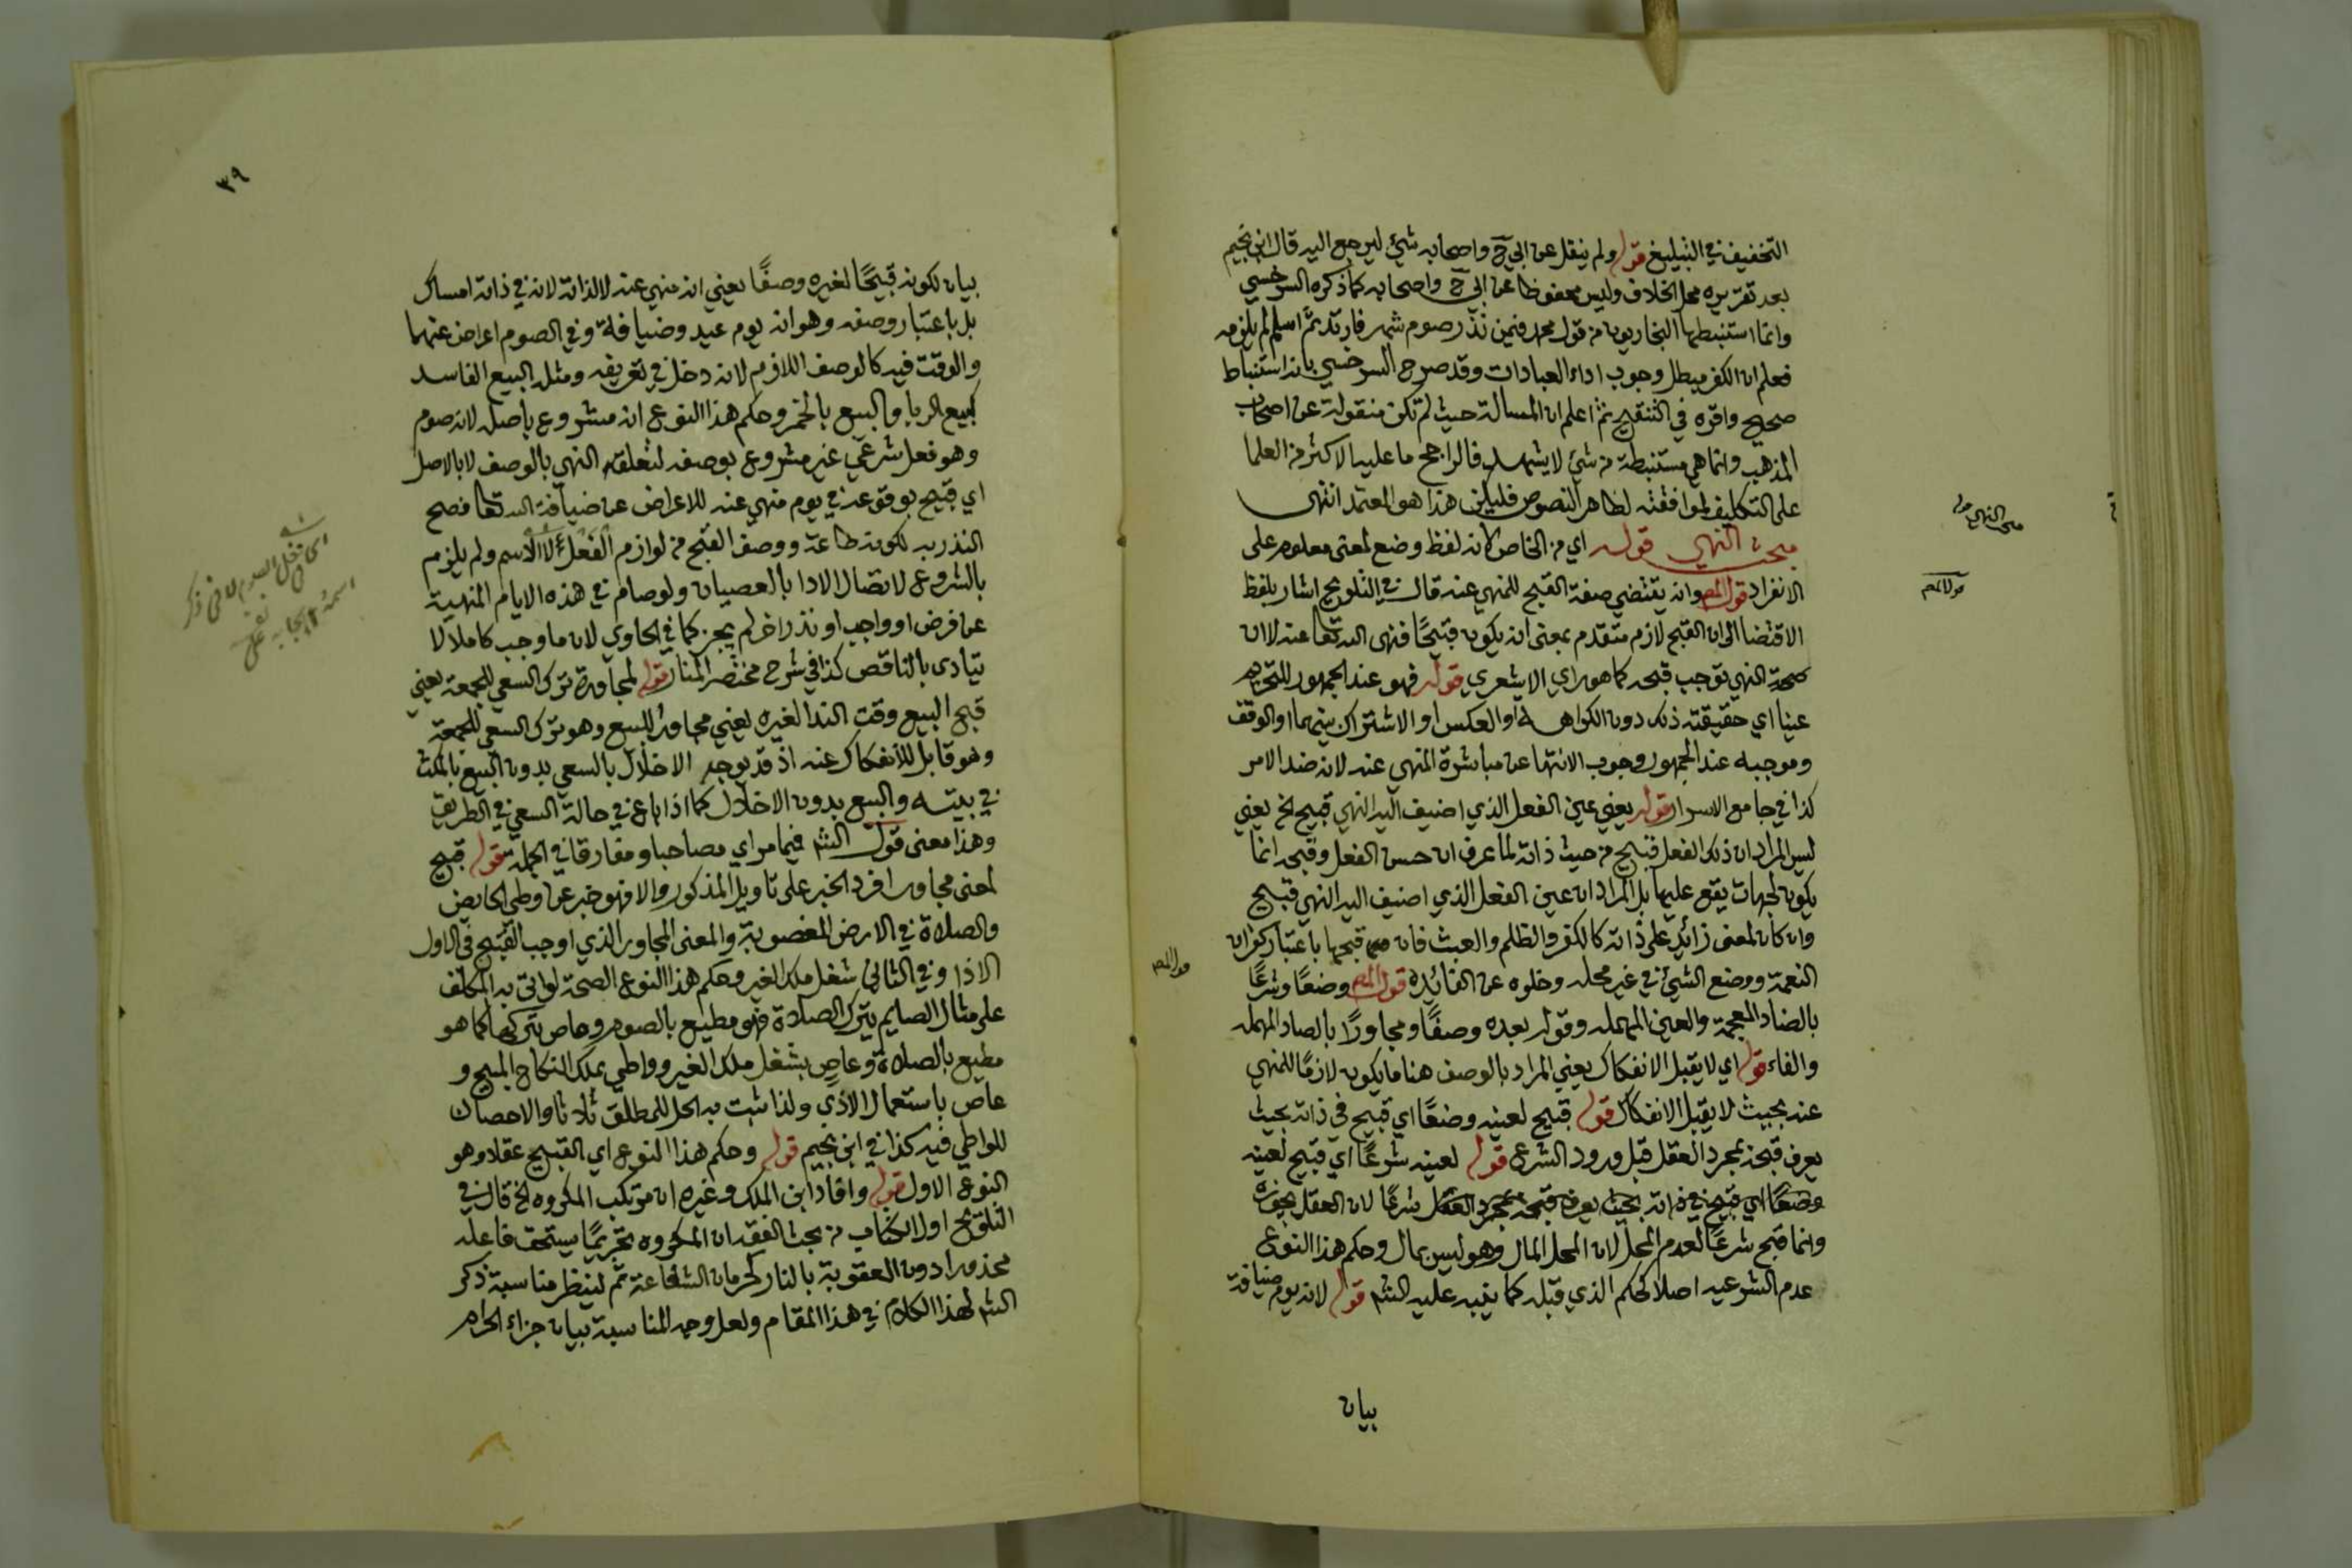 التخفيف في التبليغ قوله ولم ينقل عن ابي ح واصحابه شئ ليرجع اليه قال ابن نجيم
بعد تقريره محل الخلاف وليس محفوظا عن ابي ح واصحابه كما ذكره السرخسي
وانما استنبطها البخاريون من قول محمد فيمن نذر صوم شهر فارتد ثم اسلم لم يلزمه
فعلم ان الكفر مبطل وجوب اداء العبادات وقد صرح السرخسي بانه استنباط
صحيح واقره في التنقيح ثم اعلم ان المسالة حيث لم تكن منقولة عن اصحاب
المذهب وانما هي مستنبطة من شئ لا يشهد فالراجح ما عليه الاكثر من العلما
على التكليف لموافقته لظاهر النصوص فليكن هذا هو المعتمد انتهى
مبحث النهي قوله اي من الخاص لانه لفظ وضع لمعنى معلوم على
الانفراد قول المص وانه يقتضي صفة القبح للمنهي عنه قال في التلويح اشار بلفظ
الاقتضا الى ان القبح لازم متقدم بمعنى انه يكون قبيحًا فنهى الله تعا عنه لا ان
صحة النهي توجب قبحه كما هو راي الاشعري قوله فهو عند الجمهور للتحريم
عينا اي حقيقته ذلك دون الكراهة او العكس او الاشتراك بينهما او الوقف
وموجبه عند الجمهور وجوب الانتها عن مباشرة المنهي عنه لانه ضد الامر
كذا في جامع الاسرار قوله يعني عين الفعل الذي اضيف اليه النهي قبيح الخ يعني
ليس المراد ان ذلك الفعل قبيح من حيث ذاته لما عرف ان حسن الفعل وقبحه انما
يكون لجهات يقع عليها بل المراد ان عين الفعل الذي اضيف اليه النهي قبيح
وان كان لمعنى زائد على ذاته كالكفر والظلم والعبث فان قبحها باعتبار كفران
النعمة ووضع الشيئ في غير محله وخلوه عن الفائدة قول المص وضعًا وشرعًا
بالضاد المعجمة والعين المهملة وقوله بعده وصفًا ومجاورًا بالصاد المهملة
والفاء قوله اي لا يقبل الانفكاك يعني المراد بالوصف هنا ما يكون لازمًا للمنهي
عنه بحيث لا يقبل الانفكاك قوله قبيح لعينه وضعًا اي قبيح في ذاته بحيث
يعرف قبحه بمجرد العقل قبل ورود الشرع قوله لعينه شرعًا اي قبيح لعينه
وضعًا اي قبيح في ذاته بحيث يعرف قبحه بمجرد العقل شرعًا لان العقل يجوزه
وانما قبح شرعًا لعدم المحل لان المحل المال وهو ليس بمال وحكم هذا النوع
عدم الشرعية اصلا كالحكم الذي قبله كما ينبه عليه الشم قوله لانه يوم ضيافة
بيان
قول المص
قول المص
٣٩
بيان لكونه قبيحًا لغيره وصفًا يعني انه منهي عنه لا لذاته لانه في ذاته امساك
بل باعتبار وصفه وهو انه يوم عيد وضيافة وفي الصوم اعراض عنها
والوقت فيه كالوصف اللازم لانه دخل في تعريفه ومثله البيع الفاسد
كبيع الربا والبيع بالخمر وحكم هذا النوع انه مشروع باصله لانه صوم
وهو فعل شرعي غير مشروع بوصفه لتعلق النهي بالوصف لا بالاصل
اي قبيح بوقوعه في يوم منهي عنه للاعراض عن ضيافة الله تعا فصح
النذر به لكونه طاعة ووصف القبح من لوازم الفعل لا الاسم ولم يلزم
بالشروع لاتصال الادا بالعصيان ولو صام في هذه الايام المنهية
عن فرض او واجب او نذر اخر لم يجز كما في الحاوي لان ما وجب كاملا لا
يتادى بالناقص كذا في شرح مختصر المنار قوله لمجاورة ترك السعي للجمعة يعني
قبح البيع وقت الندا لغيره يعني مجاور للبيع وهو ترك السعي للجمعة
وهو قابل للانفكاك عنه اذ قد يوجد الاخلال بالسعي بدون البيع بالمكث
في بيته والبيع بدون الاخلال كما اذا باع في حالة السعي في الطريق
وهذا معنى قول الشم فيما مر اي مصاحبا ومفارقا في الجملة قوله قبيح
لمعنى مجاور افرد الخبر على تاويل المذكور والا فهو خبر عن وطي الحايض
والصلاة في الارض المغصوبة والمعنى المجاور الذي اوجب القبح في الاول
الاذا وفي الثاني شغل ملك الغير وحكم هذا النوع الصحة لو اتى به المكلف
على مثال الصايم يترك الصلاة فهو مطيع بالصوم وعاص بتركها كما هو
مطيع بالصلاة وعاصٍ بشغل ملك الغير وواطي بملك النكاح المبيح و
عاص باستعمال الاذي ولذا ثبت به الحل للمطلق ثلاثا والاحصان
للواطي فيه كذا في ابن نجيم قوله وحكم هذا النوع اي القبيح عقلا وهو
النوع الاول قوله وافاد ابن الملك وغيره ان مرتكب المكروه الخ قال في
التلويح اول الكتاب من بحث الفقه ان المكروه تحريمًا يستحق فاعله
محذورا دون العقوبة بالنار كحرمان الشفاعة ثم لينظر مناسبة ذكر
الشم لهذا الكلام في هذا المقام ولعل وجه المناسبة بيان جزاء الحرام